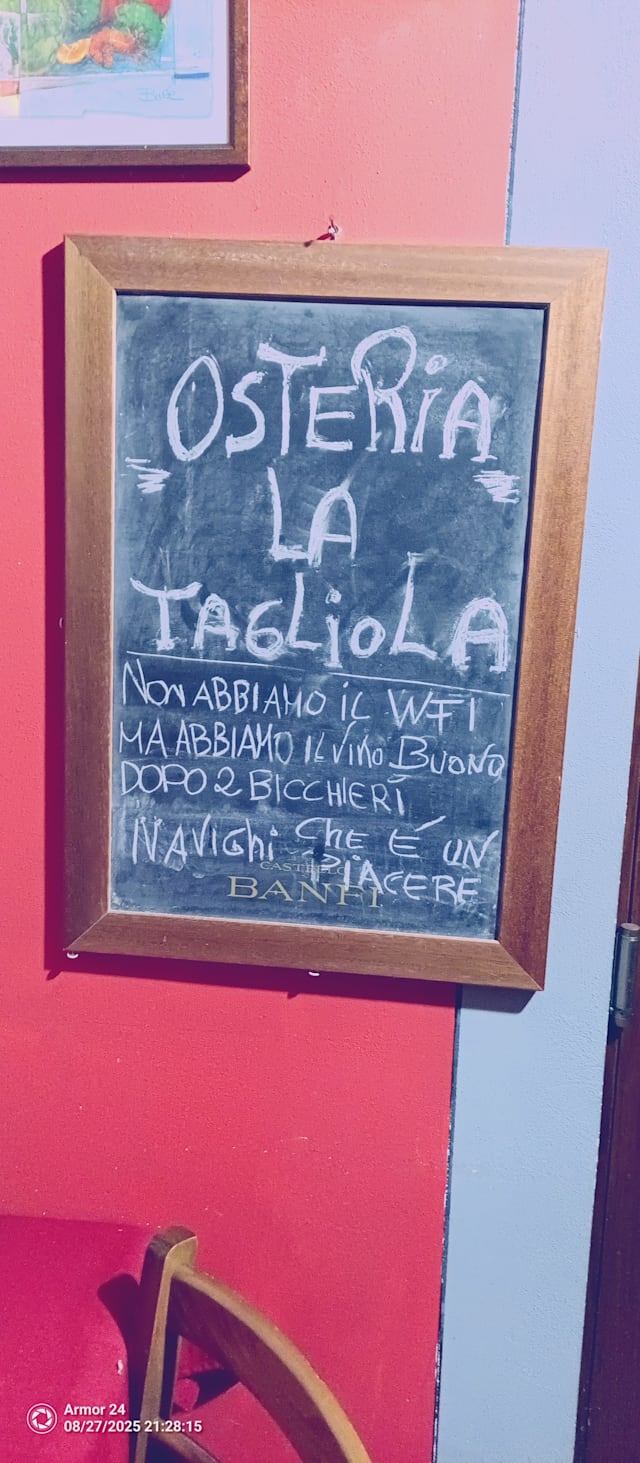 OSTERIA
LA
TAGLIOLA
NON ABBIAMO IL WFI
MA ABBIAMO IL VINO BUONO
DOPO 2 BICCHIERI
NAVIGHI CHE É UN
PIACERE
BANFI
Armor 24
08/27/2025 21:28:15